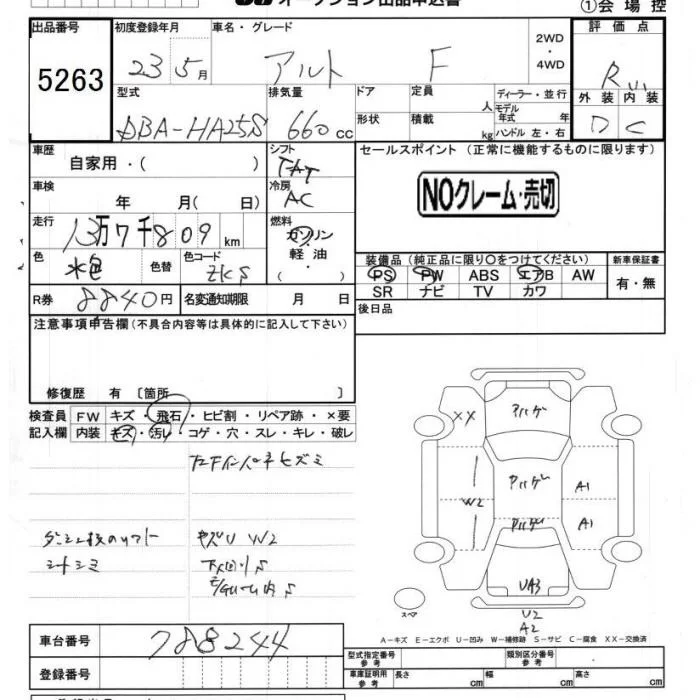 ①会場控
出品番号 初度登録年月 車名・グレード 2WD・4WD 評価点
5263 23 5月 アルト F R
外装 内装
D C
型式 排気量 ドア 定員 人 ディーラー・並行
DBA-HA25S 660cc 形状 積載 kg モデル年式 年 ハンドル 左・右
車歴 シフト セールスポイント (正常に機能するものに限ります)
自家用・( ) FAT
車検 冷房 NOクレーム・売切
年 月( 日) AC
走行 燃料
13万7千809km ガソリン
軽油
・( )
色 色替 色コード
水色 ZKS
装備品(純正品に限り○をつけてください) 新車保証書
PS PW ABS エアB AW 有・無
SR ナビ TV カワ
R券 8840円 名変通知期限 月 日 後日品
注意事項申告欄(不具合内容等は具体的に記入して下さい)
修復歴 有 〔箇所 〕
検査員 FW キズ・飛石・ヒビ割・リペア跡・×要
記入欄 内装 キズ・汚レ・コゲ・穴・スレ・キレ・破レ
シートシミ キズU W2
XX アハゲ
アハゲ
W2 A1
アハゲ A1
UA3
スペア U2
A2
A-キズ E-エクボ U-凹み W-補修跡 S-サビ C-腐食 XX-交換済
車台番号 788244
登録番号
型式指定番号 参考 類別区分番号 参考
車庫証明用 参考 長さ cm 幅 cm 高さ cm